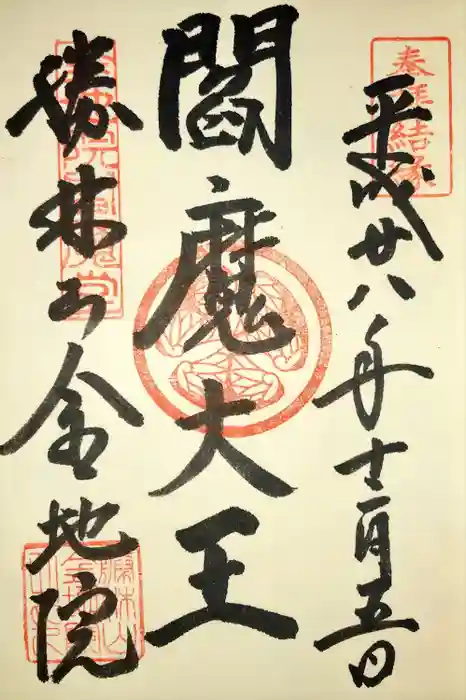 奉拝結縁
平成廿八年十二月五日
閻魔大王
勝林山金地院